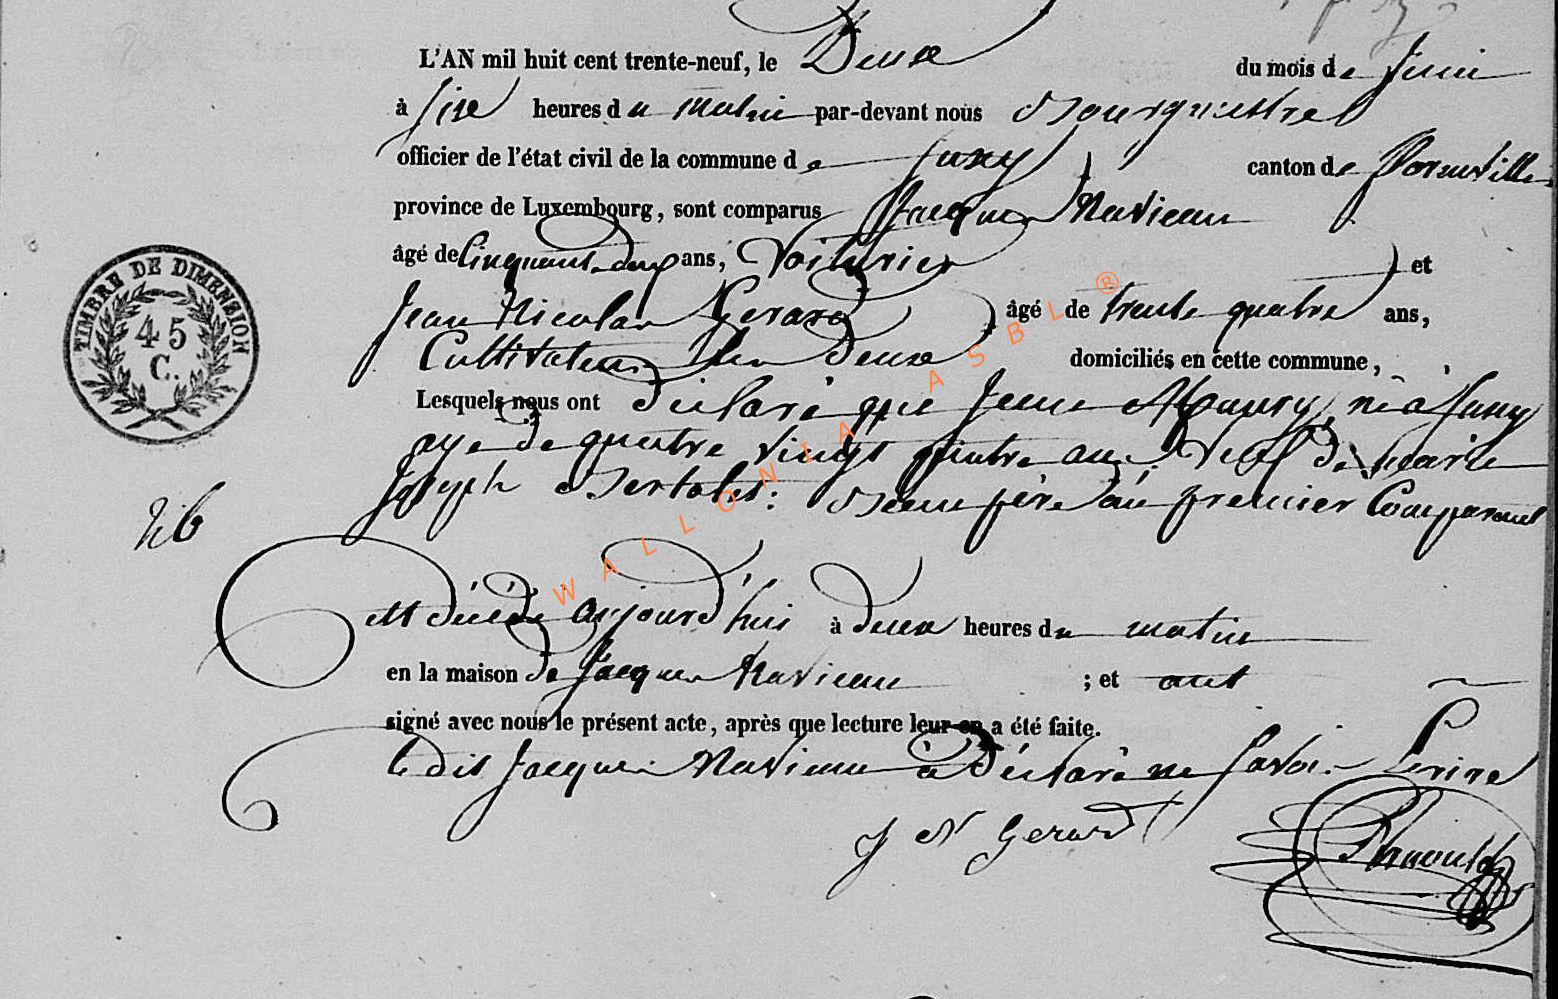 L'AN mil huit cent trente-neuf, le Deux du mois de Juin
à Six heures du matin par-devant nous Bourgmestre
officier de l'état civil de la commune de canton de
province de Luxembourg, sont comparus Jacques Navieau
âgé de Cinquante deux ans, Voiturier et
Jean Nicolas Gerard âgé de trente quatre ans,
Cultivateur les deux domiciliés en cette commune,
Lesquels nous ont déclaré que Jean né à
age de quatre vingt quatre ans Veuf de marie
Joseph Beau père du premier Comparant
est décédé aujourd'hui à deux heures du matin
en la maison de Jacques Navieau ; et ont
signé avec nous le présent acte, après que lecture leur en a été faite.
le dit Jacques Navieau a déclaré ne savoir Ecrire
J N Gerard
TIMBRE DE DIMENSION
45
C.
26
WALLONIA ASBL ®